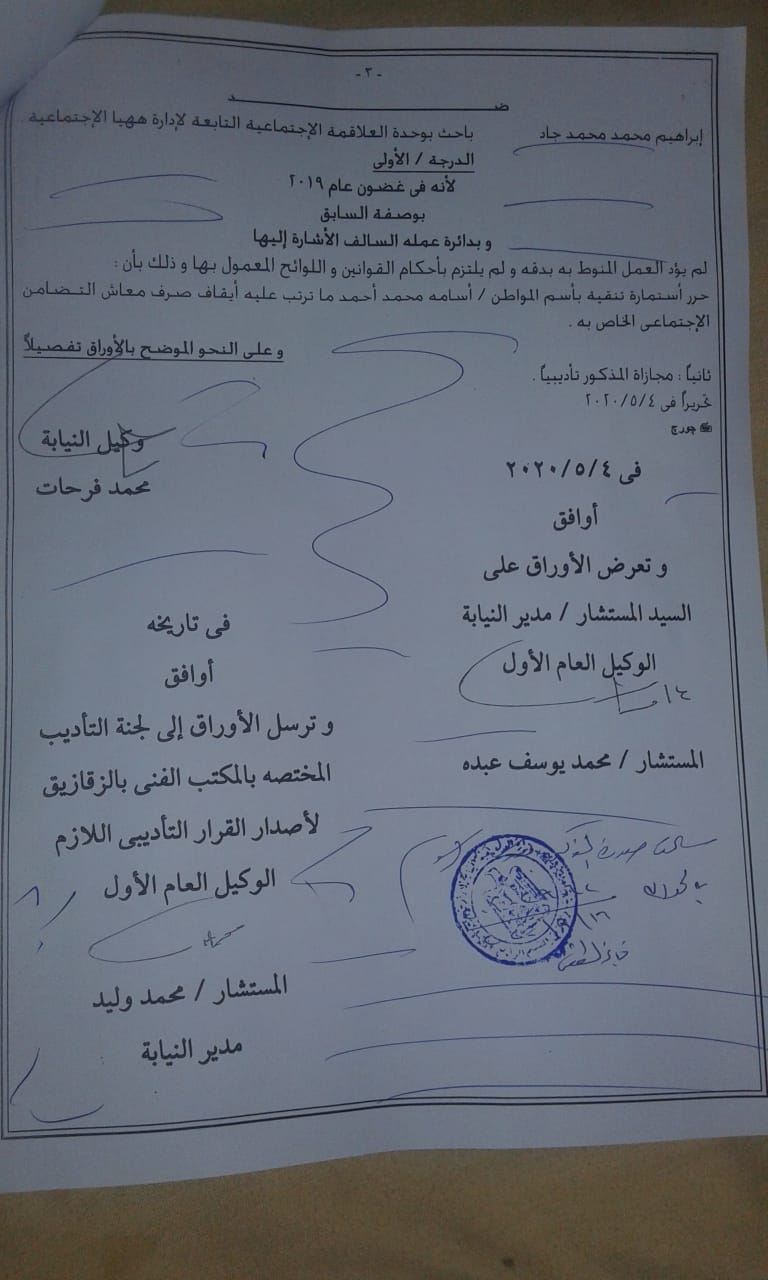 - ٣ -
ضــــــــــد
إبراهيم محمد محمد جاد باحث بوحدة العلاقمة الإجتماعية التابعة لإدارة ههيا الإجتماعية .
الدرجة / الأولى
لأنه فى غضون عام ٢٠١٩
بوصفة السابق
و بدائرة عمله السالف الأشارة إليها
لم يؤد العمل المنوط به بدقه و لم يلتزم بأحكام القوانين و اللوائح المعمول بها و ذلك بأن :
حرر أستمارة تنقية بأسم المواطن / أسامه محمد أحمد ما ترتب عليه أيقاف صرف معاش التضامن
الإجتماعى الخاص به .
و على النحو الموضح بالأوراق تفصيلاً
ثانياً : مجازاة المذكور تأديبياً .
تحريراً فى ٢٠٢٠/٥/٤
جورج
وكيل النيابة
محمد فرحات
فى ٢٠٢٠/٥/٤
أوافق
و تعرض الأوراق على
السيد المستشار / مدير النيابة
الوكيل العام الأول
المستشار / محمد يوسف عبده
فى تاريخه
أوافق
و ترسل الأوراق إلى لجنة التأديب
المختصه بالمكتب الفنى بالزقازيق
لأصدار القرار التأديبى اللازم
الوكيل العام الأول
المستشار / محمد وليد
مدير النيابة